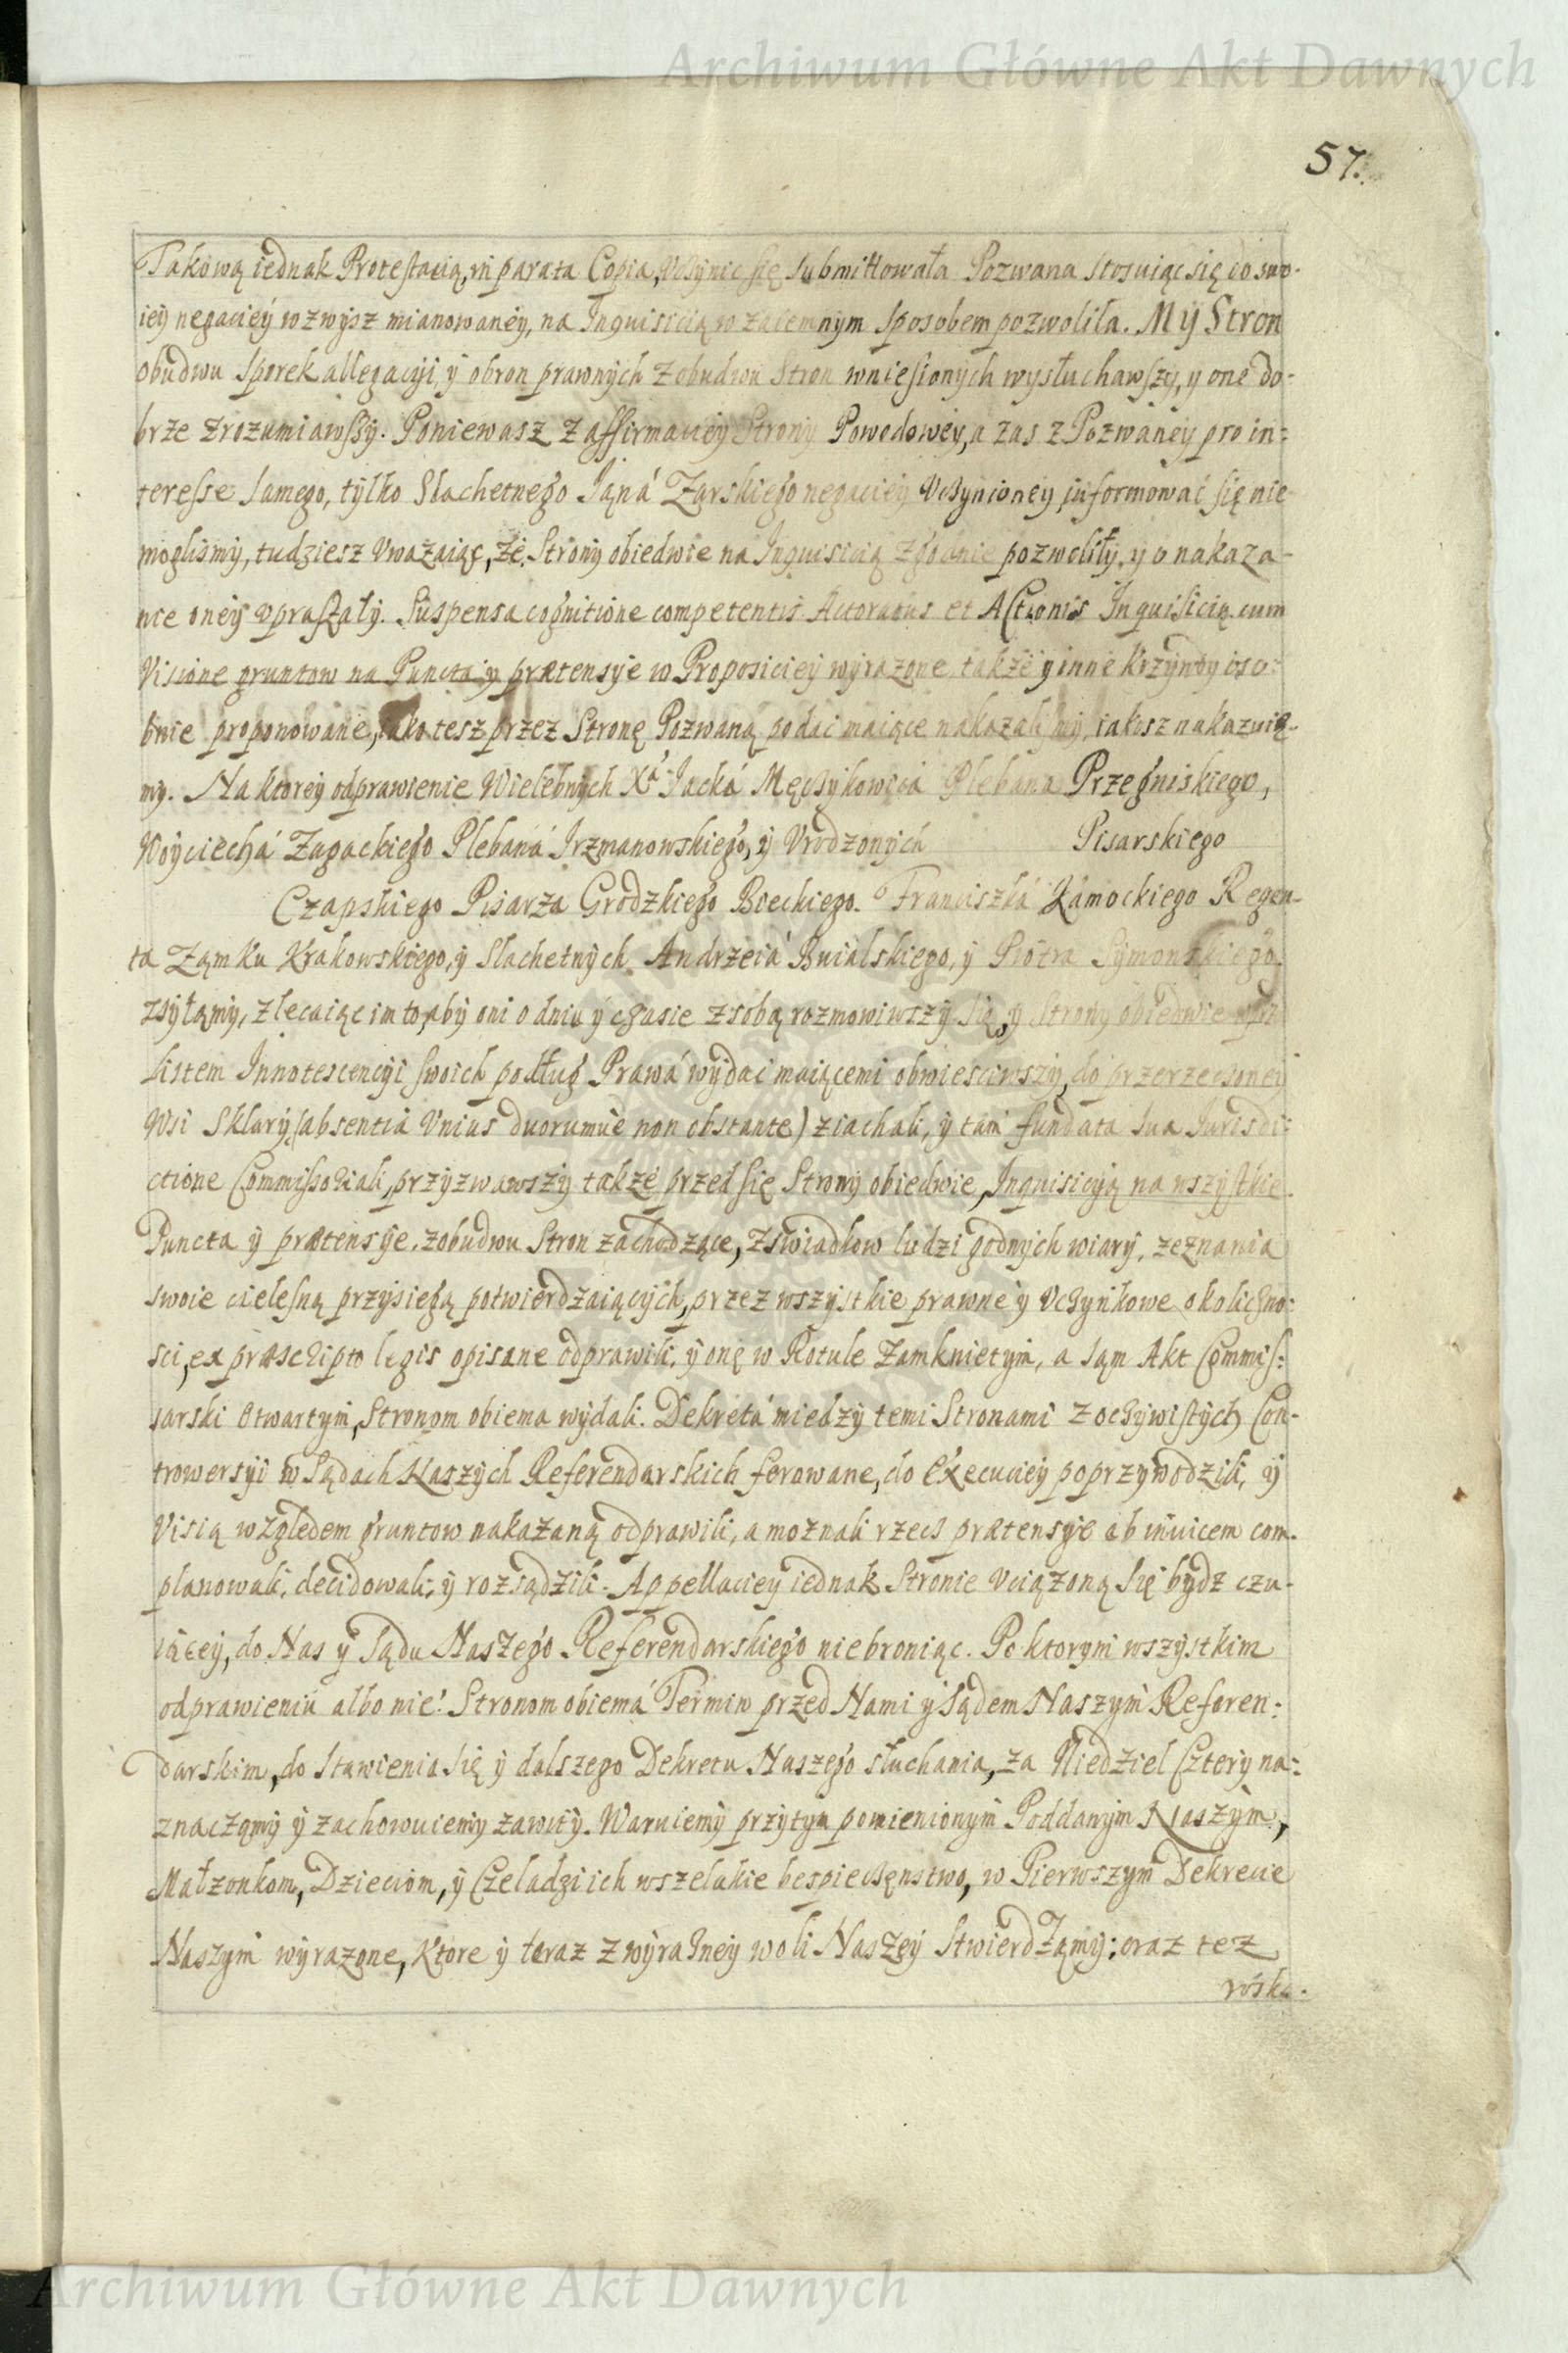 Archiwum Główne Akt Dawnych
57.
Takową iednak Protestacią, in parata Copia, Vczynic się submittowała Pozwana stosuiąc się do swo-
iey negaciey wzwysz mianowaney, na Inquisicią wzaiemnym sposobem pozwoliła. My Stron
obudwu sporek allegacyi, y obron prawnych z obudwu Stron wniesionych wysłuchawszy, y one do-
brze zrozumiawszy. Poniewasz z affirmaciey Strony Powodowey, a zas z Pozwaney pro in-
teresse samego, tylko Slachetnego Jąná Zarskiego negaciey Vczynioney, informować się nie
moglismy, tudziesz Vwazaiąc, że Strony obiedwie na Inquisicią zgodnie pozwoliły, y o nakaza-
nie oney vpraszały. Suspensa cognitione competentis Actoratus et Actionis Inquisicią cum
Visione gruntow na Puncta y prætensye w Proposiciey wyrazone, także y inne krzywdy oso-
bnie proponowane, iako tesz przez Stronę Pozwaną podać maiące nakazalismy, iakosz nakazuie-
my. Na ktorey odprawienie Wielebnych Xá Jacká Męczykowicá Plebana Przegniskiego,
Woyciechá Zagackiego Plebaná Jrzmanowskiego, y Vrodzonych Pisarskiego
Czapskiego Pisarza Grodzkiego Bieckiego. Franciszká Zámockiego Regen-
ta Zamku Krakowskiego, y Slachetnych Andrzeiá Buialskiego, y Piotra Symonskiego
zsyłamy, zlecaiąc im to, aby oni o dniu y czasie z sobą rozmowiwszy się, y Strony obiedwie
Listem Innotescencyi swoich podług Prawá wydać maiącemi obwiesciwszy, do przerzeczoney
Wsi Sklary, (absentia Vnius duorumue non obstante) ziachali, y tam fundata sua Jurisdi-
ctione Commissoriali, przyzwawszy takze przed się Strony obiedwie, Inquisicyą na wszystkie
Puncta y prætensye, z obudwu Stron zachodzące, z swiadkow ludzi godnych wiary, zeznania
swoie cielesną przysięgą potwierdzaiących, przez wszystkie prawne y Vczynkowe okoliczno-
sci, ex præscripto legis opisane odprawili, y onę w Rotule Zamknietym, a sąm Akt Commis-
sarski otwartym, Stronom obiema wydali. Dekreta miedzy temi Stronami z oczywistych Con-
trowersyi w Sądach Naszych Referendarskich ferowane, do Execuciey poprzywodzili, y
Visią względem gruntow nakazaną odprawili, a moznali rzecz prætensye ab inuicem com-
planowali, decidowali, y rozsądzili. Appellaciey iednak Stronie Vciązoną się bydz czu-
iącey, do Nas y Sądu Naszego Referendarskiego niebroniąc. Po ktorym wszystkim
odprawieniu albo nie! Stronom obiemá Termin przed Nami y Sądem Naszym Referen-
darskim, do stawienia się y dalszego Dekretu Naszego słuchania, za Niedziel Cztery na-
znaczamy y zachowuiemy zawity. Waruiemy przytym pomienionym Poddanym Naszym,
Małzonkom, Dzieciom, y Czeladzi ich wszelakie bespieczęnstwo, w Pierwszym Dekrecie
Naszym wyrazone, ktore y teraz z wyrazney woli Naszey stwierdzamy; oraz tez
roska-
Archiwum Główne Akt Dawnych